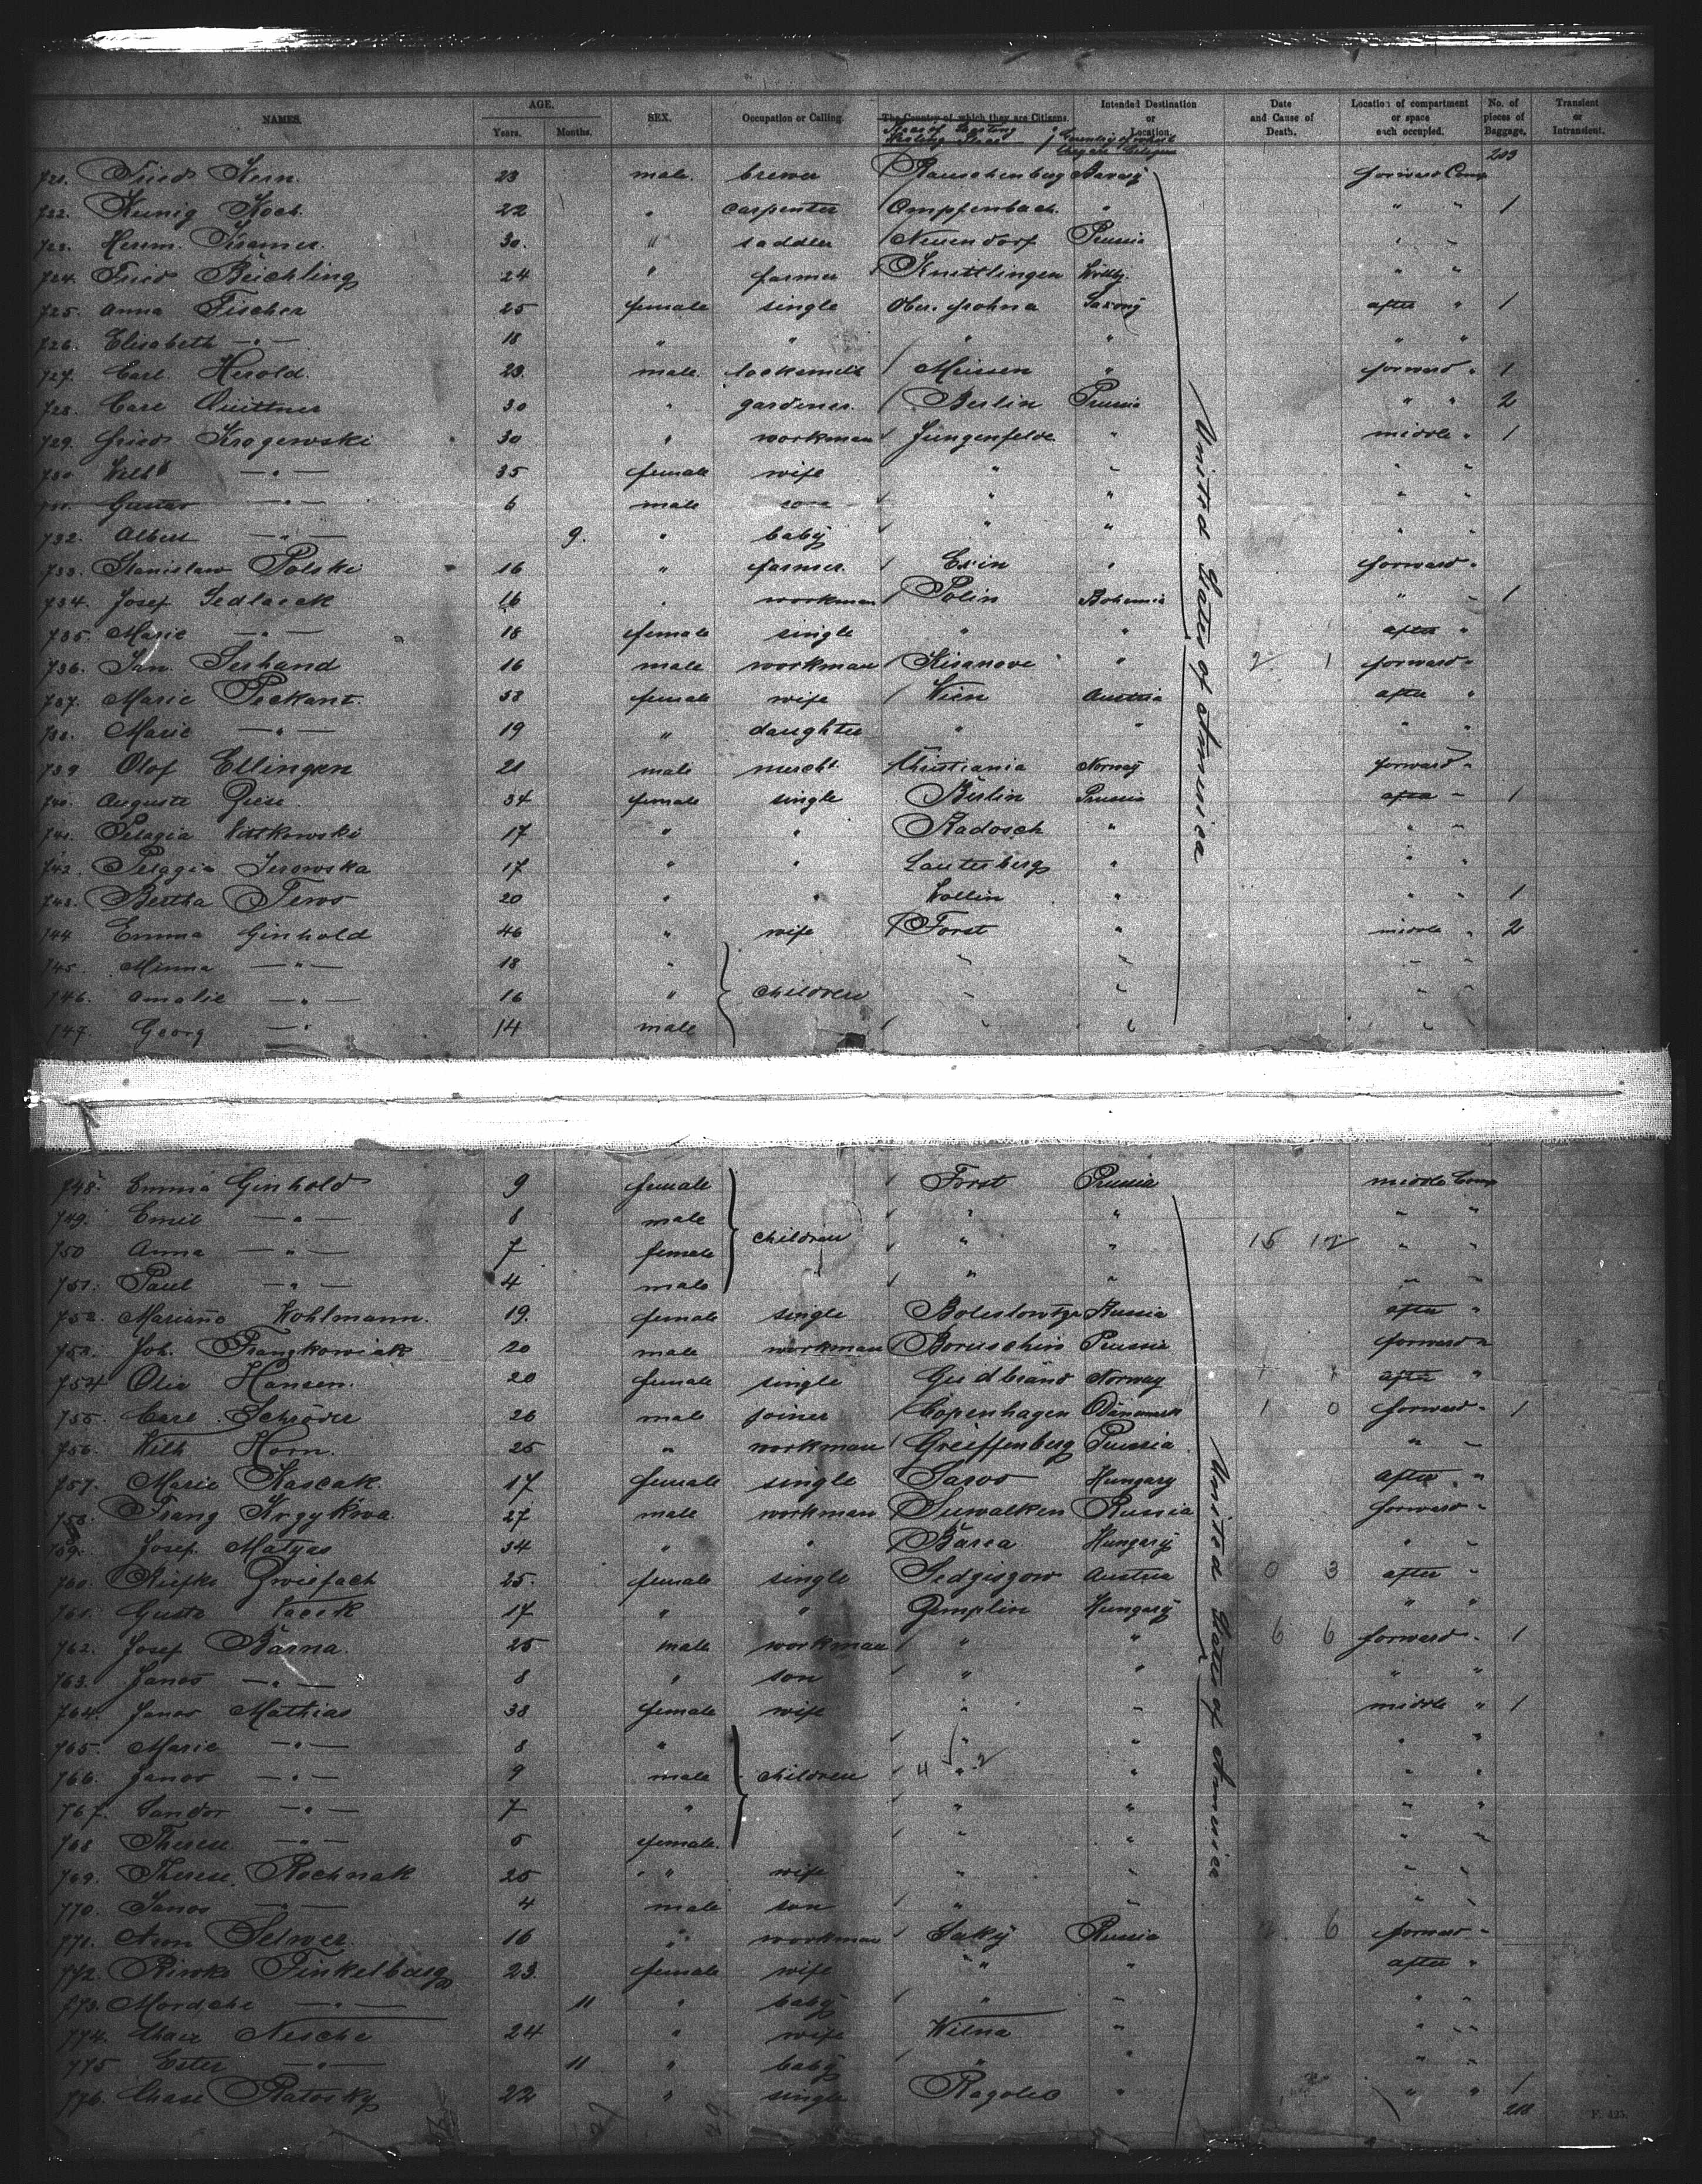 NAMES. AGE. Years. Months. SEX. Occupation or Calling. The Country of which they are Citizens. Intended Destination or Location. Date and Cause of Death. Location of compartment or space each occupied. No. of pieces of Baggage. Transient or Intransient.
Country of which they are Citizens
203
721. Fried. Kern. 23 male. brewer Rauschenberg Bavary forward Comp
722. Kunig Koch. 22 " carpenter Ompfenbach. " " " 1
723. Herm. Kramer. 30. " saddler Neuendorf Prussia " "
724. Fried Beichling 24 " farmer Knittlingen Wrtbg. " "
725. Anna Fischer 25 female single Ober. frohna Saxony after " 1
726. Elisabeth —"— 18 " " " " " "
727. Carl Herold. 23. male. locksmith Meissen " forward " 1
728. Carl Quittner 30 " gardener. Berlin Prussia " " 2
729. Fried. Krogewski 30 " workman Jungenfelde " middle " 1
730 Wilh —"— 35 female wife " " " "
731. Gustav —"— 6 male son " " " "
732. Albert —"— 9. " baby " " " "
733. Stanislaw Polski 16 " farmer. Exin " forward "
734. Josef Sedlacek 16 " workman Polin Bohemia " " 1
735. Marie —"— 18 female single " " after "
736. Jan. Serhand 16 male workman Kisanove " 2 1 forward "
737. Marie Peckant. 53 female wife Wien Austria after "
738. Marie —"— 19 " daughter " " " "
739 Olof Ellingen 21 male mercht. Christiania Norway forward "
740. Auguste Giese 34 female single Berlin Prussia after " 1
741. Pelagia Wittkowski 17 " " Radosch " " "
742. Pelagia Jerowska 17 " " Lauterberg " " "
743. Bertha Tews 20 " " Wollin " " " 1
744 Emma Ginhold 46 " wife Forst " middle " 2
745 Minna —"— 18 " " " " "
746. Amalie —"— 16 " children " " " "
747. Georg —"— 14 male " " " "
United States of America
748. Emma Ginhold 9 female Forst Prussia middle Comp
749. Emil —"— 8 male " " " "
750 Anna —"— 7 female children " " 15 12 " "
751. Paul —"— 4 male " " " "
752. Mariano Kohlmann. 19. female single Boleslowtza Russia after "
753. Joh. Frangkowiak 20 male workman Boruschin Prussia forward "
754 Olia Hansen. 20 female single Gudbrand Norway after "
755. Carl Schröder 26 male joiner Copenhagen Dänemark 1 0 forward " 1
756. Wilh Horn. 25 " workman Greiffenberg Prussia " "
757. Marie Kascak. 17 female single Saros Hungary after "
758. Franz Krzykwa. 27 male workman Suwalken Russia forward "
759. Josef Matyas 34 " " Barca Hungary " "
760. Riefke Zwiefach 25. female single Sedziszow Austria 0 3 after "
761. Gusto Vacek 17 " " Zemplin Hungary " "
762. Josef Barna. 25 male workman " " 6 6 forward " 1
763. Janos —"— 8 " son " " " "
764. Janos Mathias 38 female wife " " middle " 1
765. Marie —"— 8 " " " " "
766. Janos —"— 9 male children 4 " 2 " " "
767. Sandor —"— 7 " " " " "
768 Therese —"— 5 female. " " " "
769. Therese Rochnak 25 " wife " " " "
770. Janos —"— 4 male son " " " "
771. Aron Selwer 16 " workman Saky Russia 6 forward "
772. Riwke Finkelberg 23. female wife " " after "
773. Mordche —"— 11 " baby " " " "
774. Chaie Nesche 24 " wife Wilna " " "
775 Ester —"— 11 " baby " " " "
776. Chase Ratosky 22 " single Ragoleo " " " 1
United States of America
218
F. 425.